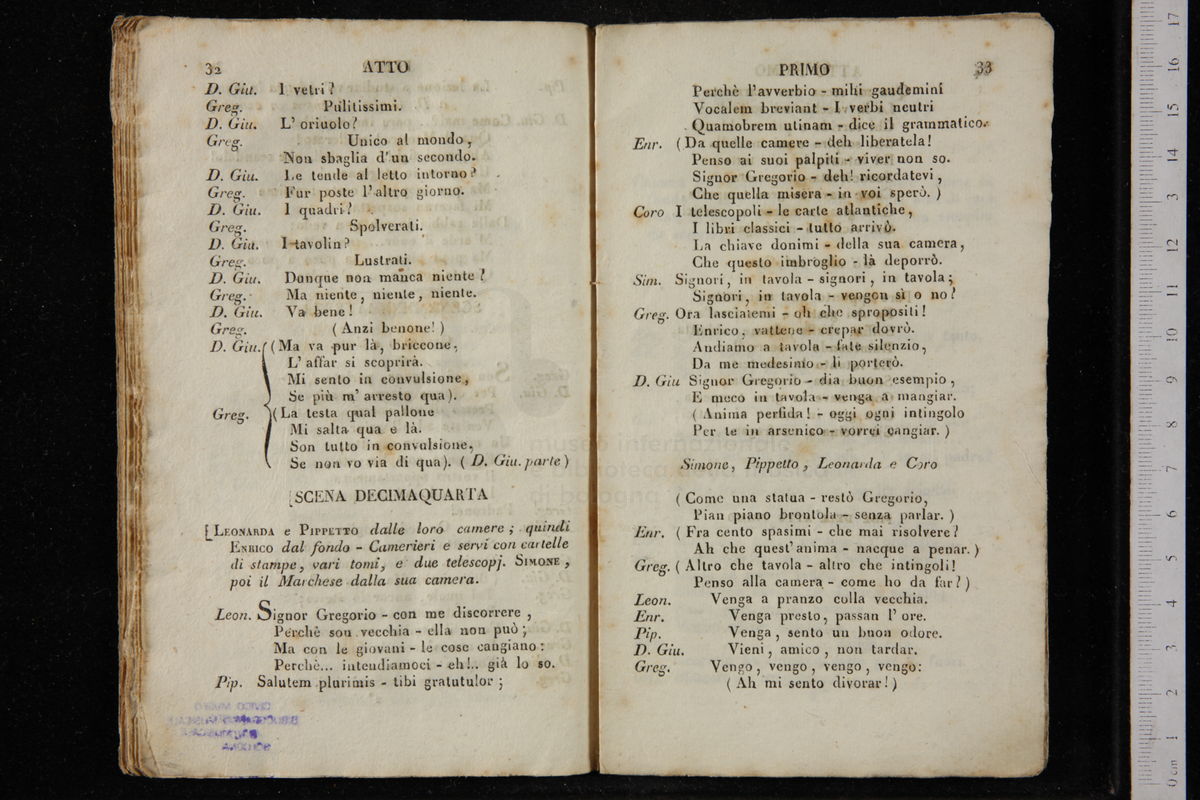 32 ATTO
D. Giu. I vetri?
Greg. Pulitissimi.
D. Giu. L' oriuolo?
Greg. Unico al mondo,
Non sbaglia d'un secondo.
D. Giu. Le tende al letto intorno?
Greg. Fur poste l'altro giorno.
D. Giu. I quadri?
Greg. Spolverati.
D. Giu. I tavolin?
Greg. Lustrati.
D. Giu. Dunque non manca niente?
Greg. Ma niente, niente, niente.
D. Giu. Va bene!
Greg. (Anzi benone!)
D. Giu. (Ma va pur là, briccone,
L' affar si scoprirà.
Mi sento in convulsione,
Se più m' arresto qua).
Greg. (La testa qual pallone
Mi salta qua e là.
Son tutto in convulsione,
Se non vo via di qua). (D. Giu. parte)
SCENA DECIMAQUARTA
LEONARDA e PIPPETTO dalle loro camere; quindi
ENRICO dal fondo - Camerieri e servi con cartelle
di stampe, vari tomi, e due telescopj. SIMONE,
poi il Marchese dalla sua camera.
Leon. Signor Gregorio - con me discorrere,
Perchè son vecchia - ella non può;
Ma con le giovani - le cose cangiano:
Perchè... intendiamoci - eh!.. già lo so.
Pip. Salutem plurimis - tibi gratutulor;
PRIMO 33
Perchè l'avverbio - mihi gaudemini
Vocalem breviant - I verbi neutri
Quamobrem utinam - dice il grammatico.
Enr. (Da quelle camere - deh liberatela!
Penso ai suoi palpiti - viver non so.
Signor Gregorio - deh! ricordatevi,
Che quella misera - in voi sperò.)
Coro I telescopoli - le carte atlantiche,
I libri classici - tutto arrivò.
La chiave donimi - della sua camera,
Che questo imbroglio - là deporrò.
Sim. Signori, in tavola - signori, in tavola;
Signori, in tavola - vengon sì o no?
Greg. Ora lasciatemi - oh che spropositi!
Enrico, vattene - crepar dovrò.
Andiamo a tavola - fate silenzio,
Da me medesimo - li porterò.
D. Giu Signor Gregorio - dia buon esempio,
E meco in tavola - venga a mangiar.
(Anima perfida! - oggi ogni intingolo
Per te in arsenico - vorrei cangiar.)
Simone, Pippetto, Leonarda e Coro
(Come una statua - restò Gregorio,
Pian piano brontola - senza parlar.)
Enr. (Fra cento spasimi - che mai risolvere?
Ah che quest'anima - nacque a penar.)
Greg. (Altro che tavola - altro che intingoli!
Penso alla camera - come ho da far?)
Leon. Venga a pranzo colla vecchia.
Enr. Venga presto, passan l' ore.
Pip. Venga, sento un buon odore.
D. Giu. Vieni, amico, non tardar.
Greg. Vengo, vengo, vengo, vengo:
(Ah mi sento divorar!)